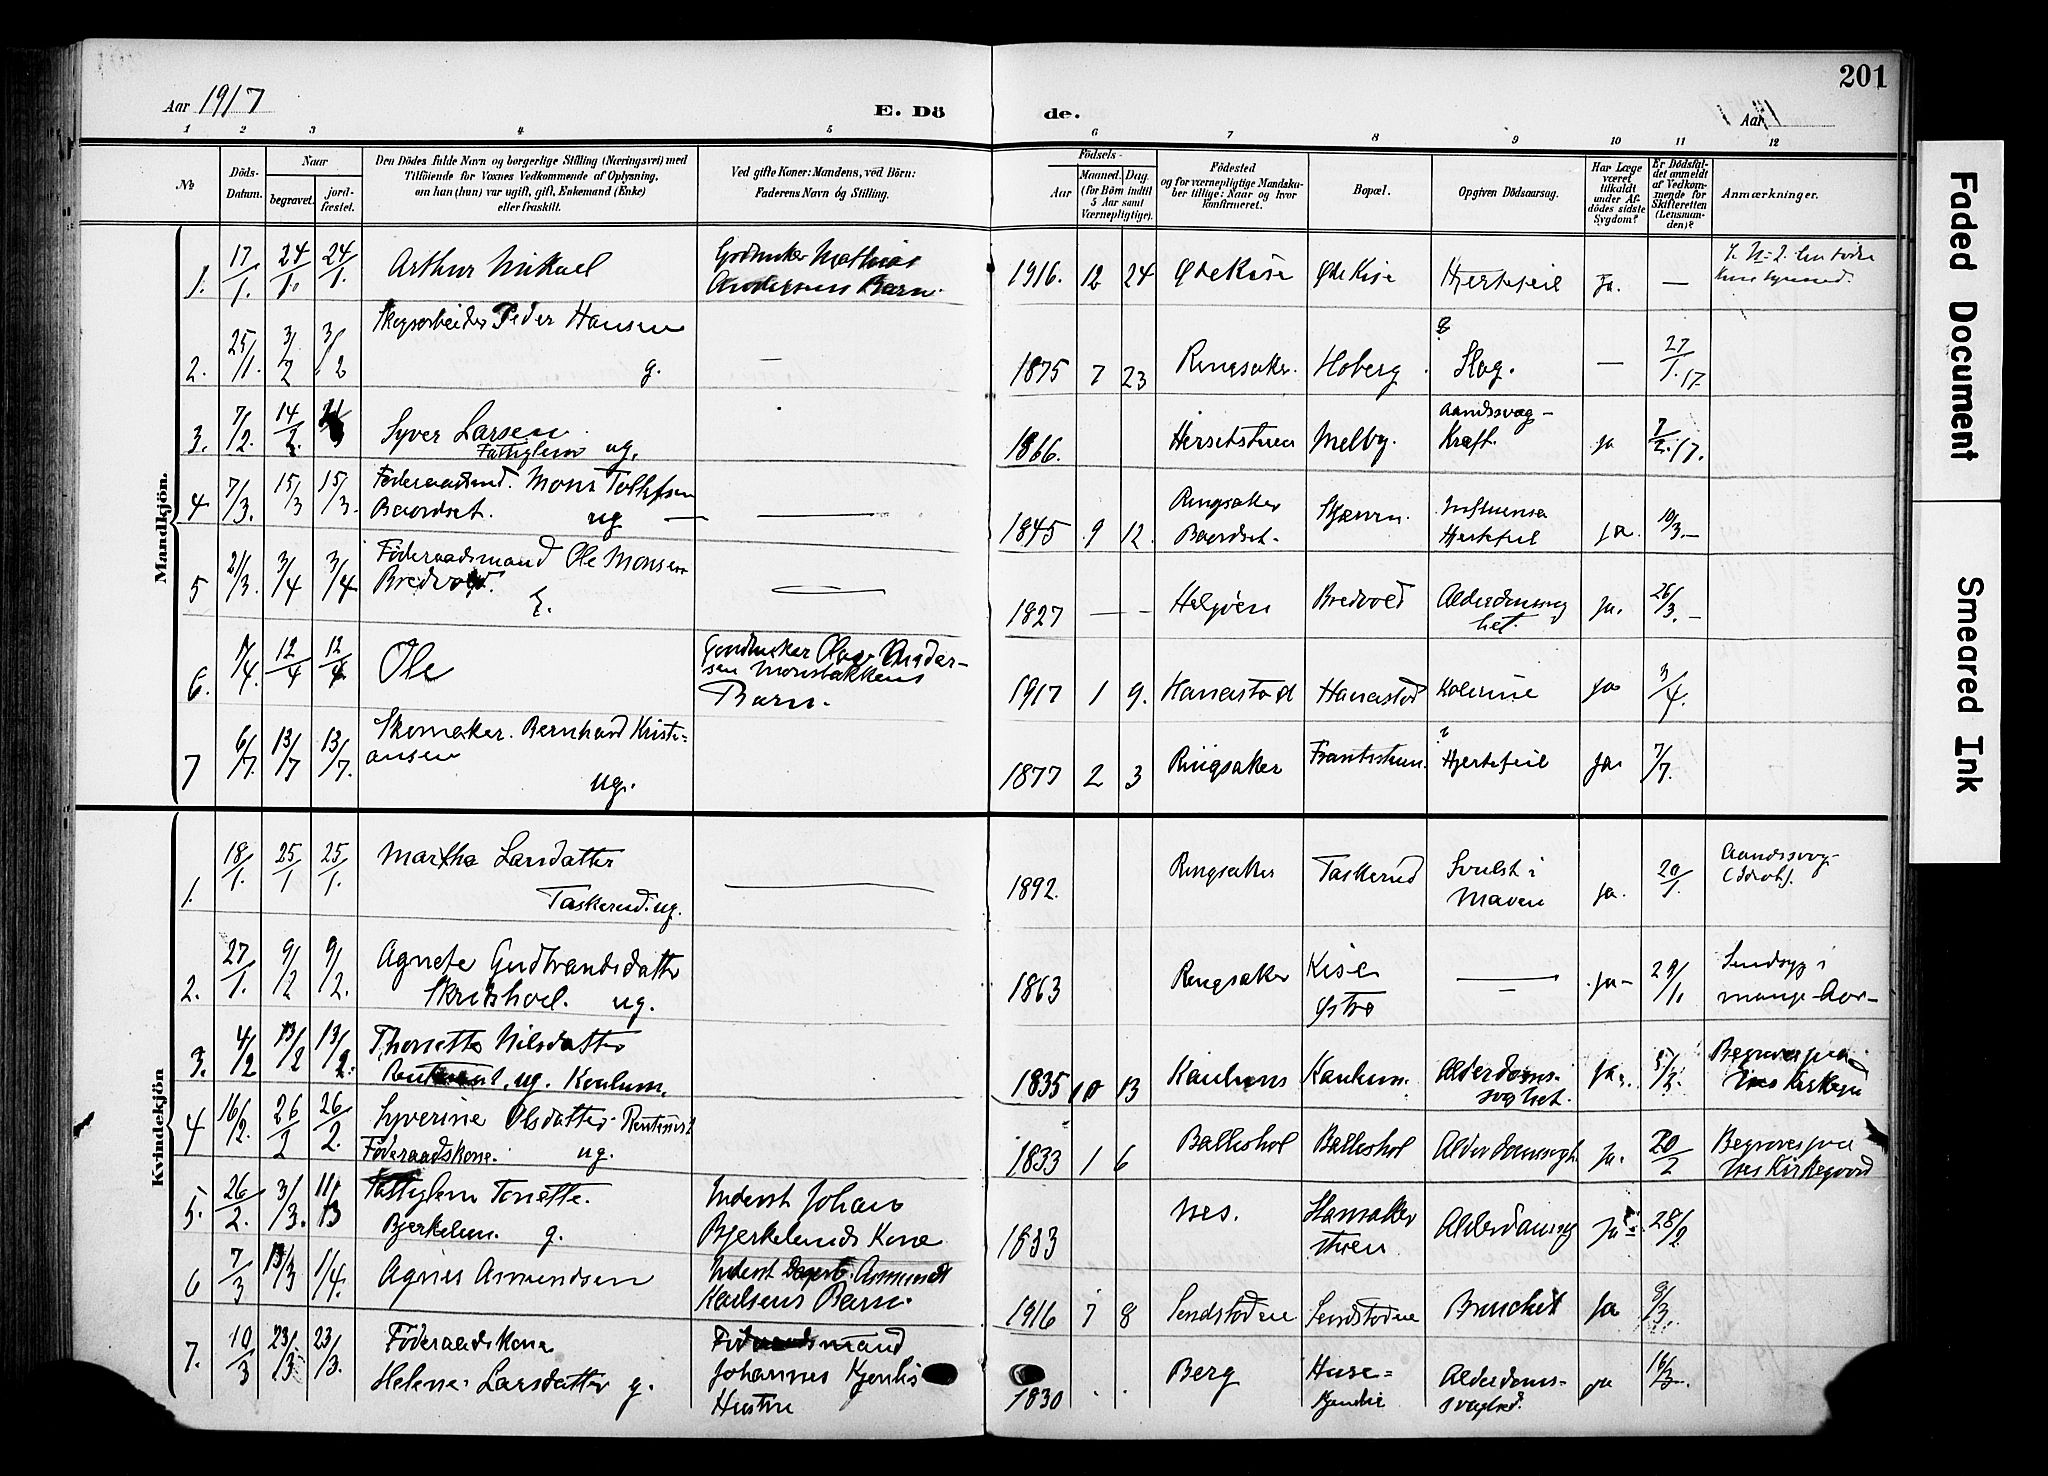 201
Aar 1917
E. Dö de.
Aar 191
1 2 3 4 5 6 7 8 9 10 11 12
No
Döds-Datum.
Naar
begravet.
jord-fæstet.
Den Dödes fulde Navn og borgerlige Stilling (Næringsvei) med
Tilföiende for Voxnes Vedkommende af Oplysning,
om han (hun) var ugift, gift, Enkemand (Enke)
eller fraskilt.
Ved gifte Koner: Mandens, ved Börn:
Faderens Navn og Stilling.
Födsels-
Aar
Maaned. Dag.
(for Börn indtil
5 Aar samt
Værnepligtige).
Födested
og for værnepligtige Mandska-
ber tillige: Naar og hvor
konfirmeret.
Bopæl.
Opgiven Dödsaarsag.
Har Læge
været
tilkaldt
under Af-
dödes sidste
Sygdom?
Er Dödsfal-
det anmeldt
af Vedkom-
mende for
Skifteretten
(Lensman-
den)?
Anmærkninger.
Mandkjön.
1. 17/1. 24/1. 24/1. Arthur Mikael
Mathias
Andersens Barn.
1916. 12 24 Øde Kise Øde Kise Hjertefeil Ja. —
2. 25/1. 3/2 3/2 Skogsarbeider Peder Hansen
g. —
1875 7 23 Ringsaker. Hoberg. Slag. — 27/1.17.
3. 7/2. 14/2. Syver Larsen
Fattiglem ug.
1866. Melby. Aandssvag-
Kraft. ja 7/2.17.
4 7/3. 15/3 15/3. Föderaadsmd. Mons Tollefsen
Baardset. ug —
1845 9 12. Ringsaker
Baardset. Influensa
Hjertefeil Ja. 10/3.—
5 21/3. 3/4 3/4 Föderaadsmand Ole Monsen
Bredvold.
E.
1827 — — Helgöen Bredvold Alderdomssvag
het. Ja. 26/3.—
6. 1/4. 12/4 12/4 Ole
Gaardbruker Olaf Andersen
Barn.
1917 1 9. Hanestad Hanestad ja 3/4.
7 6/7. 13/7 13/7. Skomaker. Bernhard Kristi-
ansen
ug.
1877 2 3 Ringsaker Hjertefeil Ja 7/7.
Kvindekjön
1. 18/1. 25/1 25/1. Martha Larsdatter
Taskerud. ug.
1892. Ringsaker Taskerud Svulst i
Maven ja. 20/1. Aandssvag
2. 27/1. 9/2 9/2. Agnete Gudbrandsdatter
Skredshoel. ug.
1863 Ringsaker Kise
östre — Ja- 29/1. Sindsyg i
mange Aar-
3. 4/2 13/2 13/2. Thonette Nilsdatter
ug. Kaulum.
1835 10 13 Kaulum. Alderdoms-
svaghet. Ja. 5/2. Begraves paa
Nes Kirkegd
4 16/2. 26/2 26/2. Syverine Olsdatter. Rentenist
Föderaadskone. ug.
1833 1 6 Balleshol Balleshol Alderdomssvagh. Ja. 20/2 Begraves paa
Nes Kirkegaard
5. 26/2. 3/3. Fattiglem Tonette.
g.
Inderst Johan
Bjerkelunds Kone
1833 Nes. Alderdomssvag Ja 28/2
6 7/3 13/3 1/4. Agnes Asmundsen
Inderst Asmundt
Karlsens Barn.
1916 7 8 Sundstodne Sundstodne Bronchit ja 8/3.
7. 10/3 23/3. 23/3. Föderaadskone
Helene Larsdatter g.
Föderaadsmand
Johannes
Hustru
1830 Berg Alderdoms-
svaghed. ja 16/3.
Faded Document
Smeared Ink